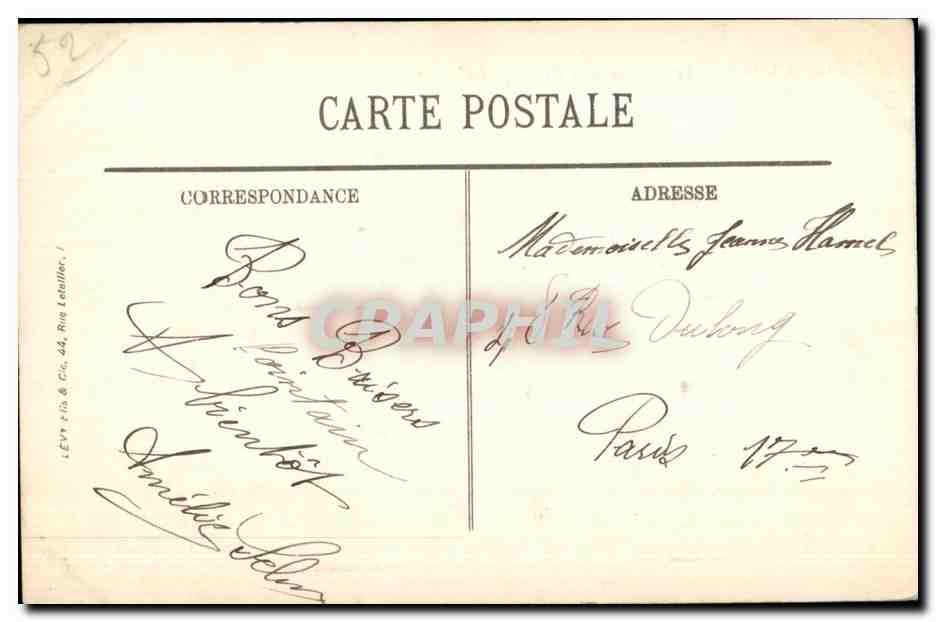 52
CARTE POSTALE
CORRESPONDANCE
ADRESSE
Bons Baisers
lointain
A bientôt
Amélie
Mademoiselle Jeanne Hamel
Rue Dulong
Paris 17
LEVY Fils & Cie, 44, Rue Letellier,
CPAPHIL